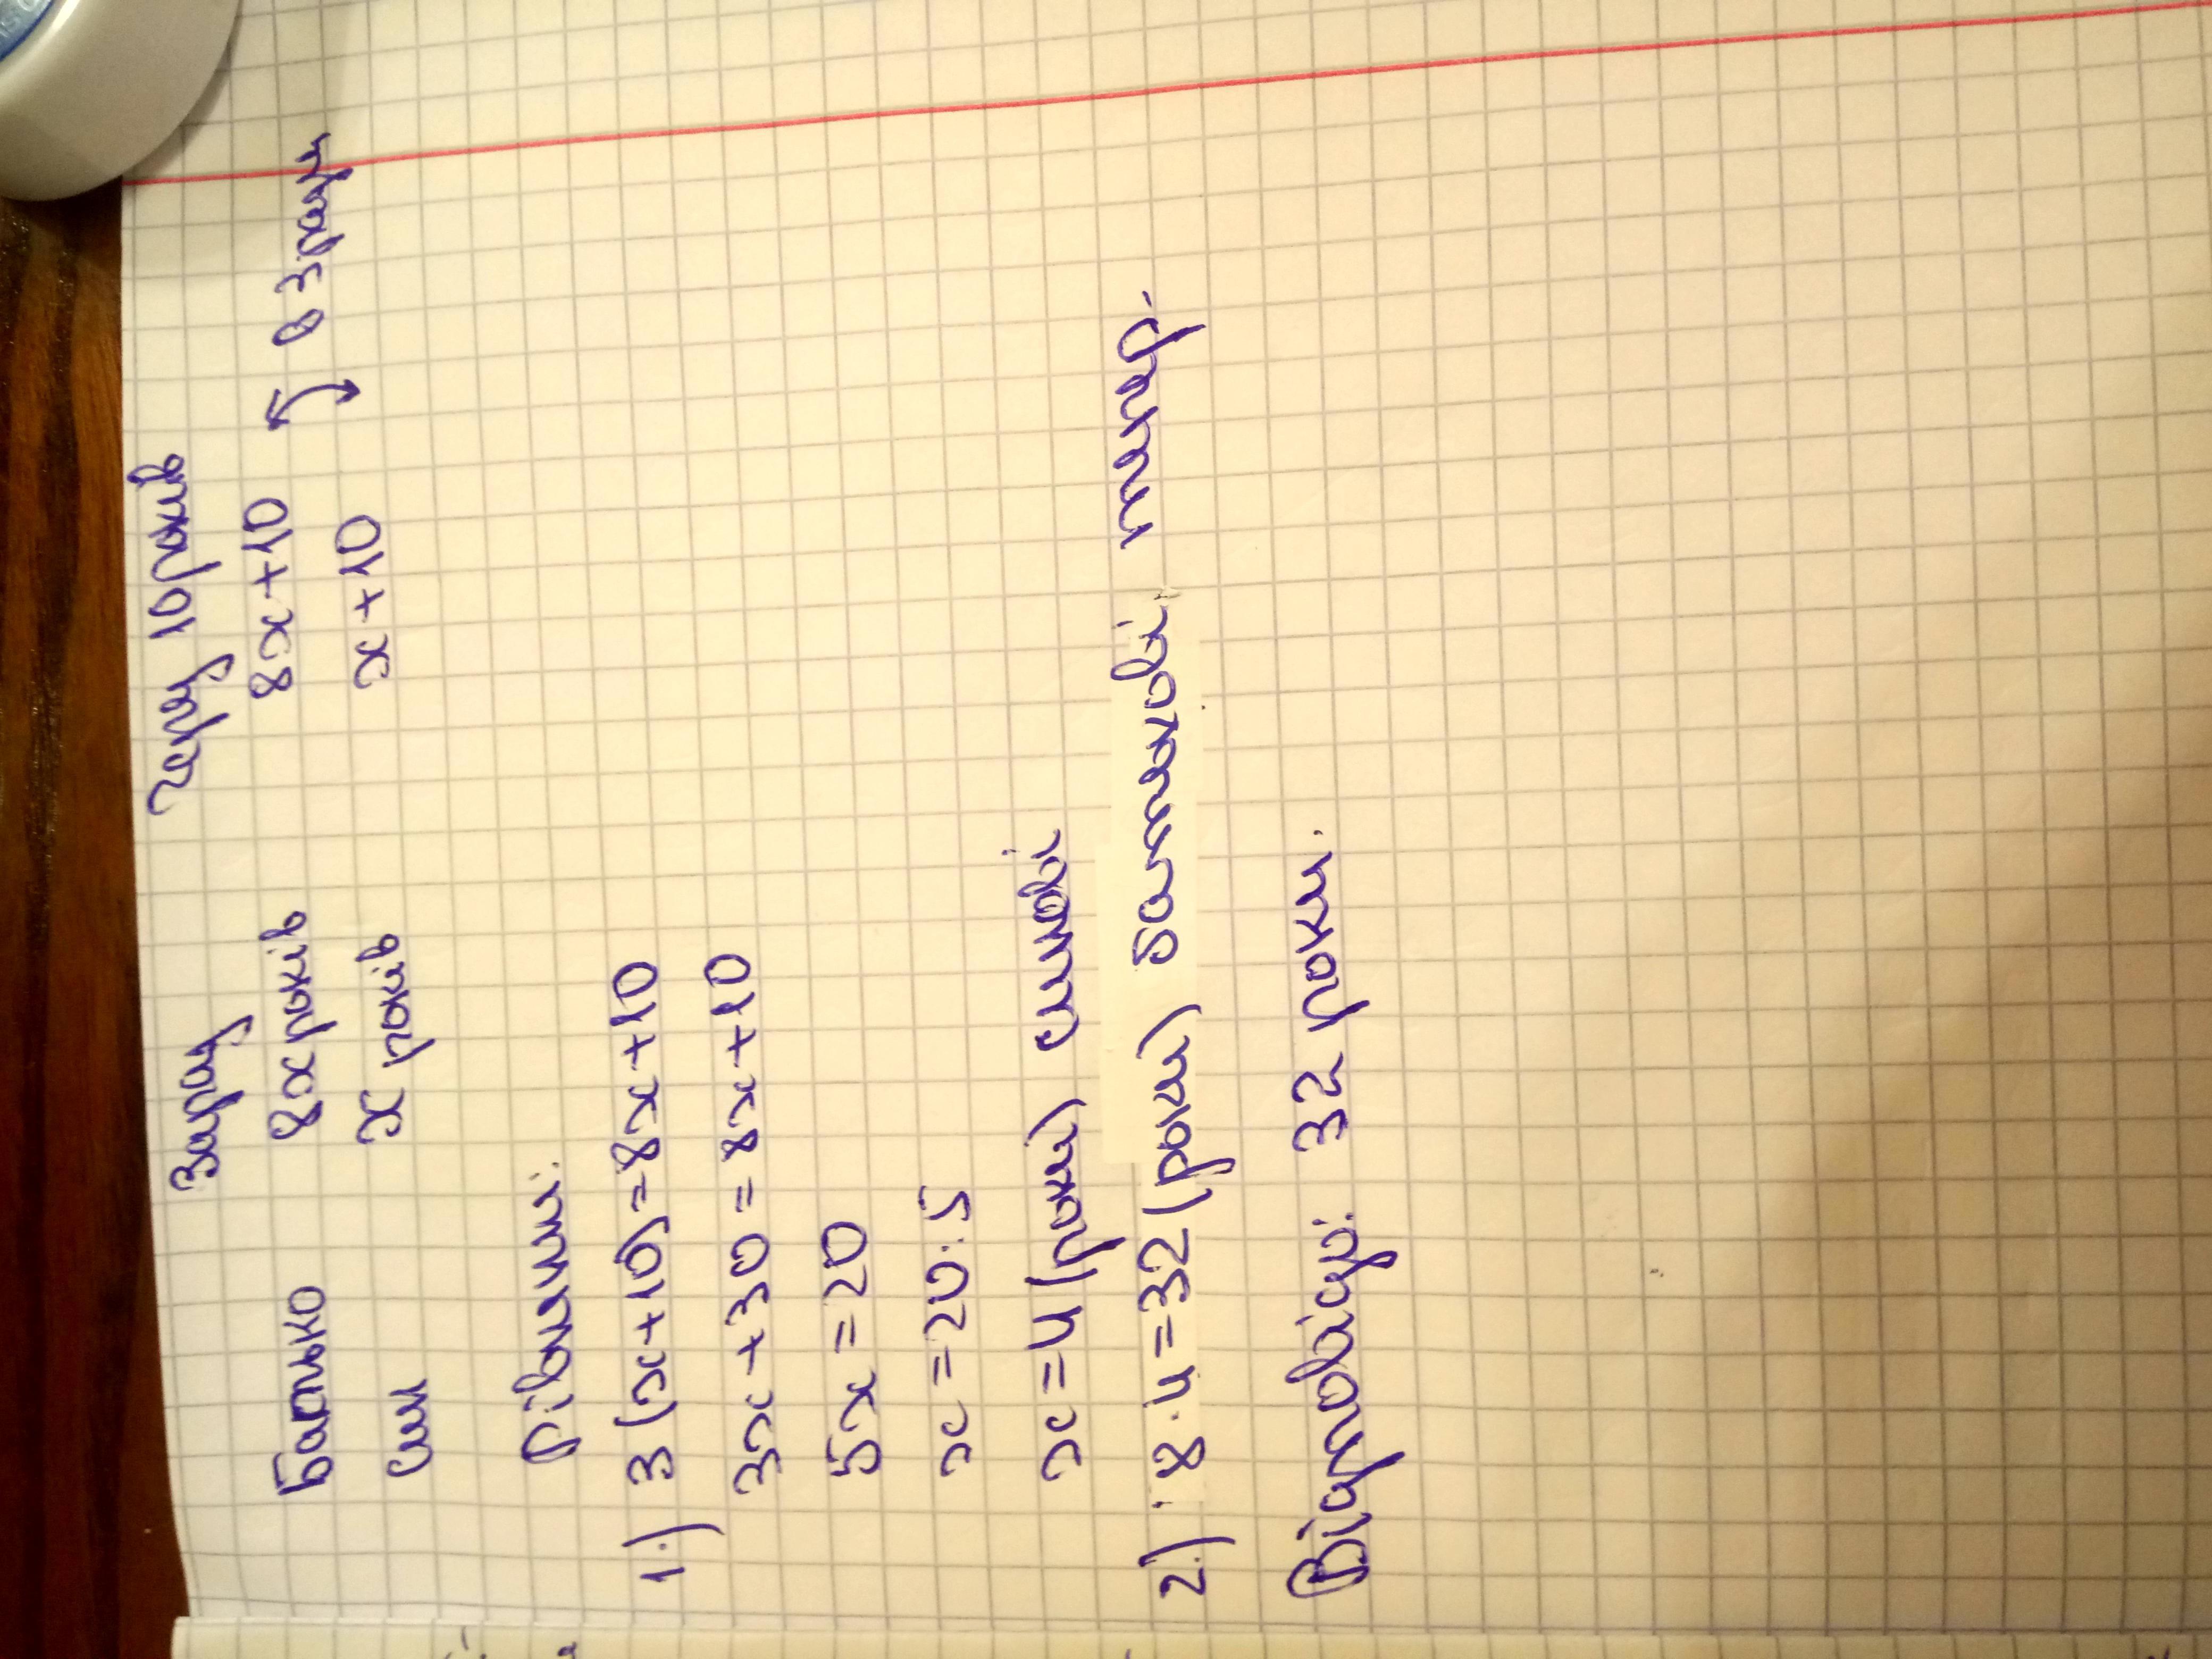 Зараз Через 10 років
Батько 8x років 8x+10 в 3 рази
Син x років x+10
Рівняння:
1.) 3(x+10)=8x+10
3x+30=8x+10
5x=20
x=20:5
x=4(роки) синові
2.) 8·4=32(роки) батькові тепер.
Відповідь: 32 роки.